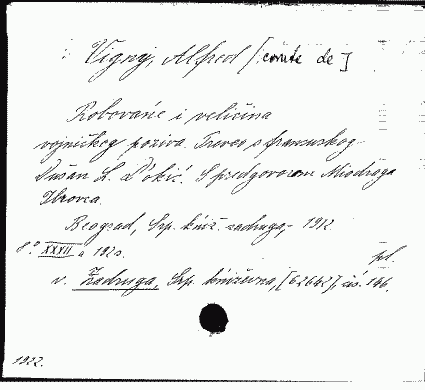 Vigny, Alfred [comte de]
Robovańe i veličina
vojničkog poziva. Preveo s francuskog
Dušan L. Đokić. S predgovorom Miodraga
Ibrovca.
Beograd, Srp. kńiž. zadruga, 1912.
8° XXXII a 192 s.
pl.
v. Zadruga, Srp. kńiževna, [62642], čis. 146.
1922.